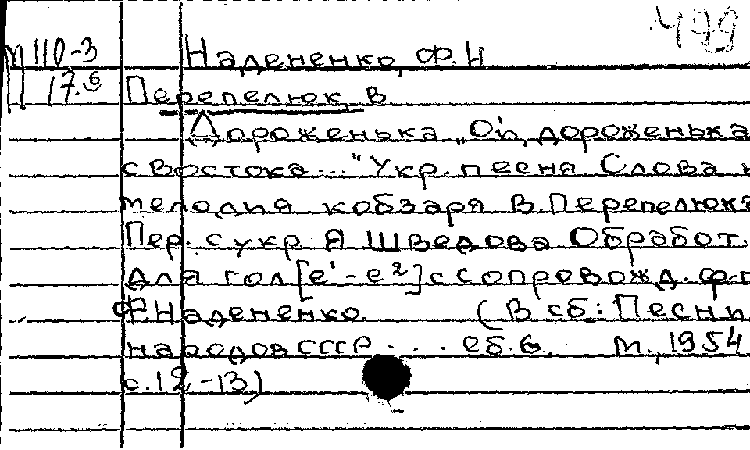 499
М 110-3 Надененко, Ф.Н
П 17.6 Перепелюк, В
Дороженька „Ой, дороженька
с Востока..." Укр. песня Слова и
мелодия кобзаря В. Перепелюка
Пер. с укр Я Шведова Обработ.
для гол [e¹-e²] с сопровожд. ф-п
Ф. Надененко. (В сб: Песни
народов СССР... Сб. 6. М., 1954
с. 12-13)